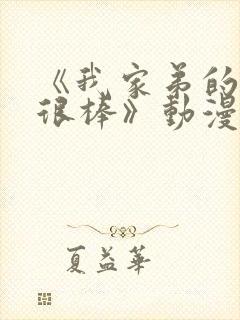 《我家弟弟的
很棒》動漫
夏益華